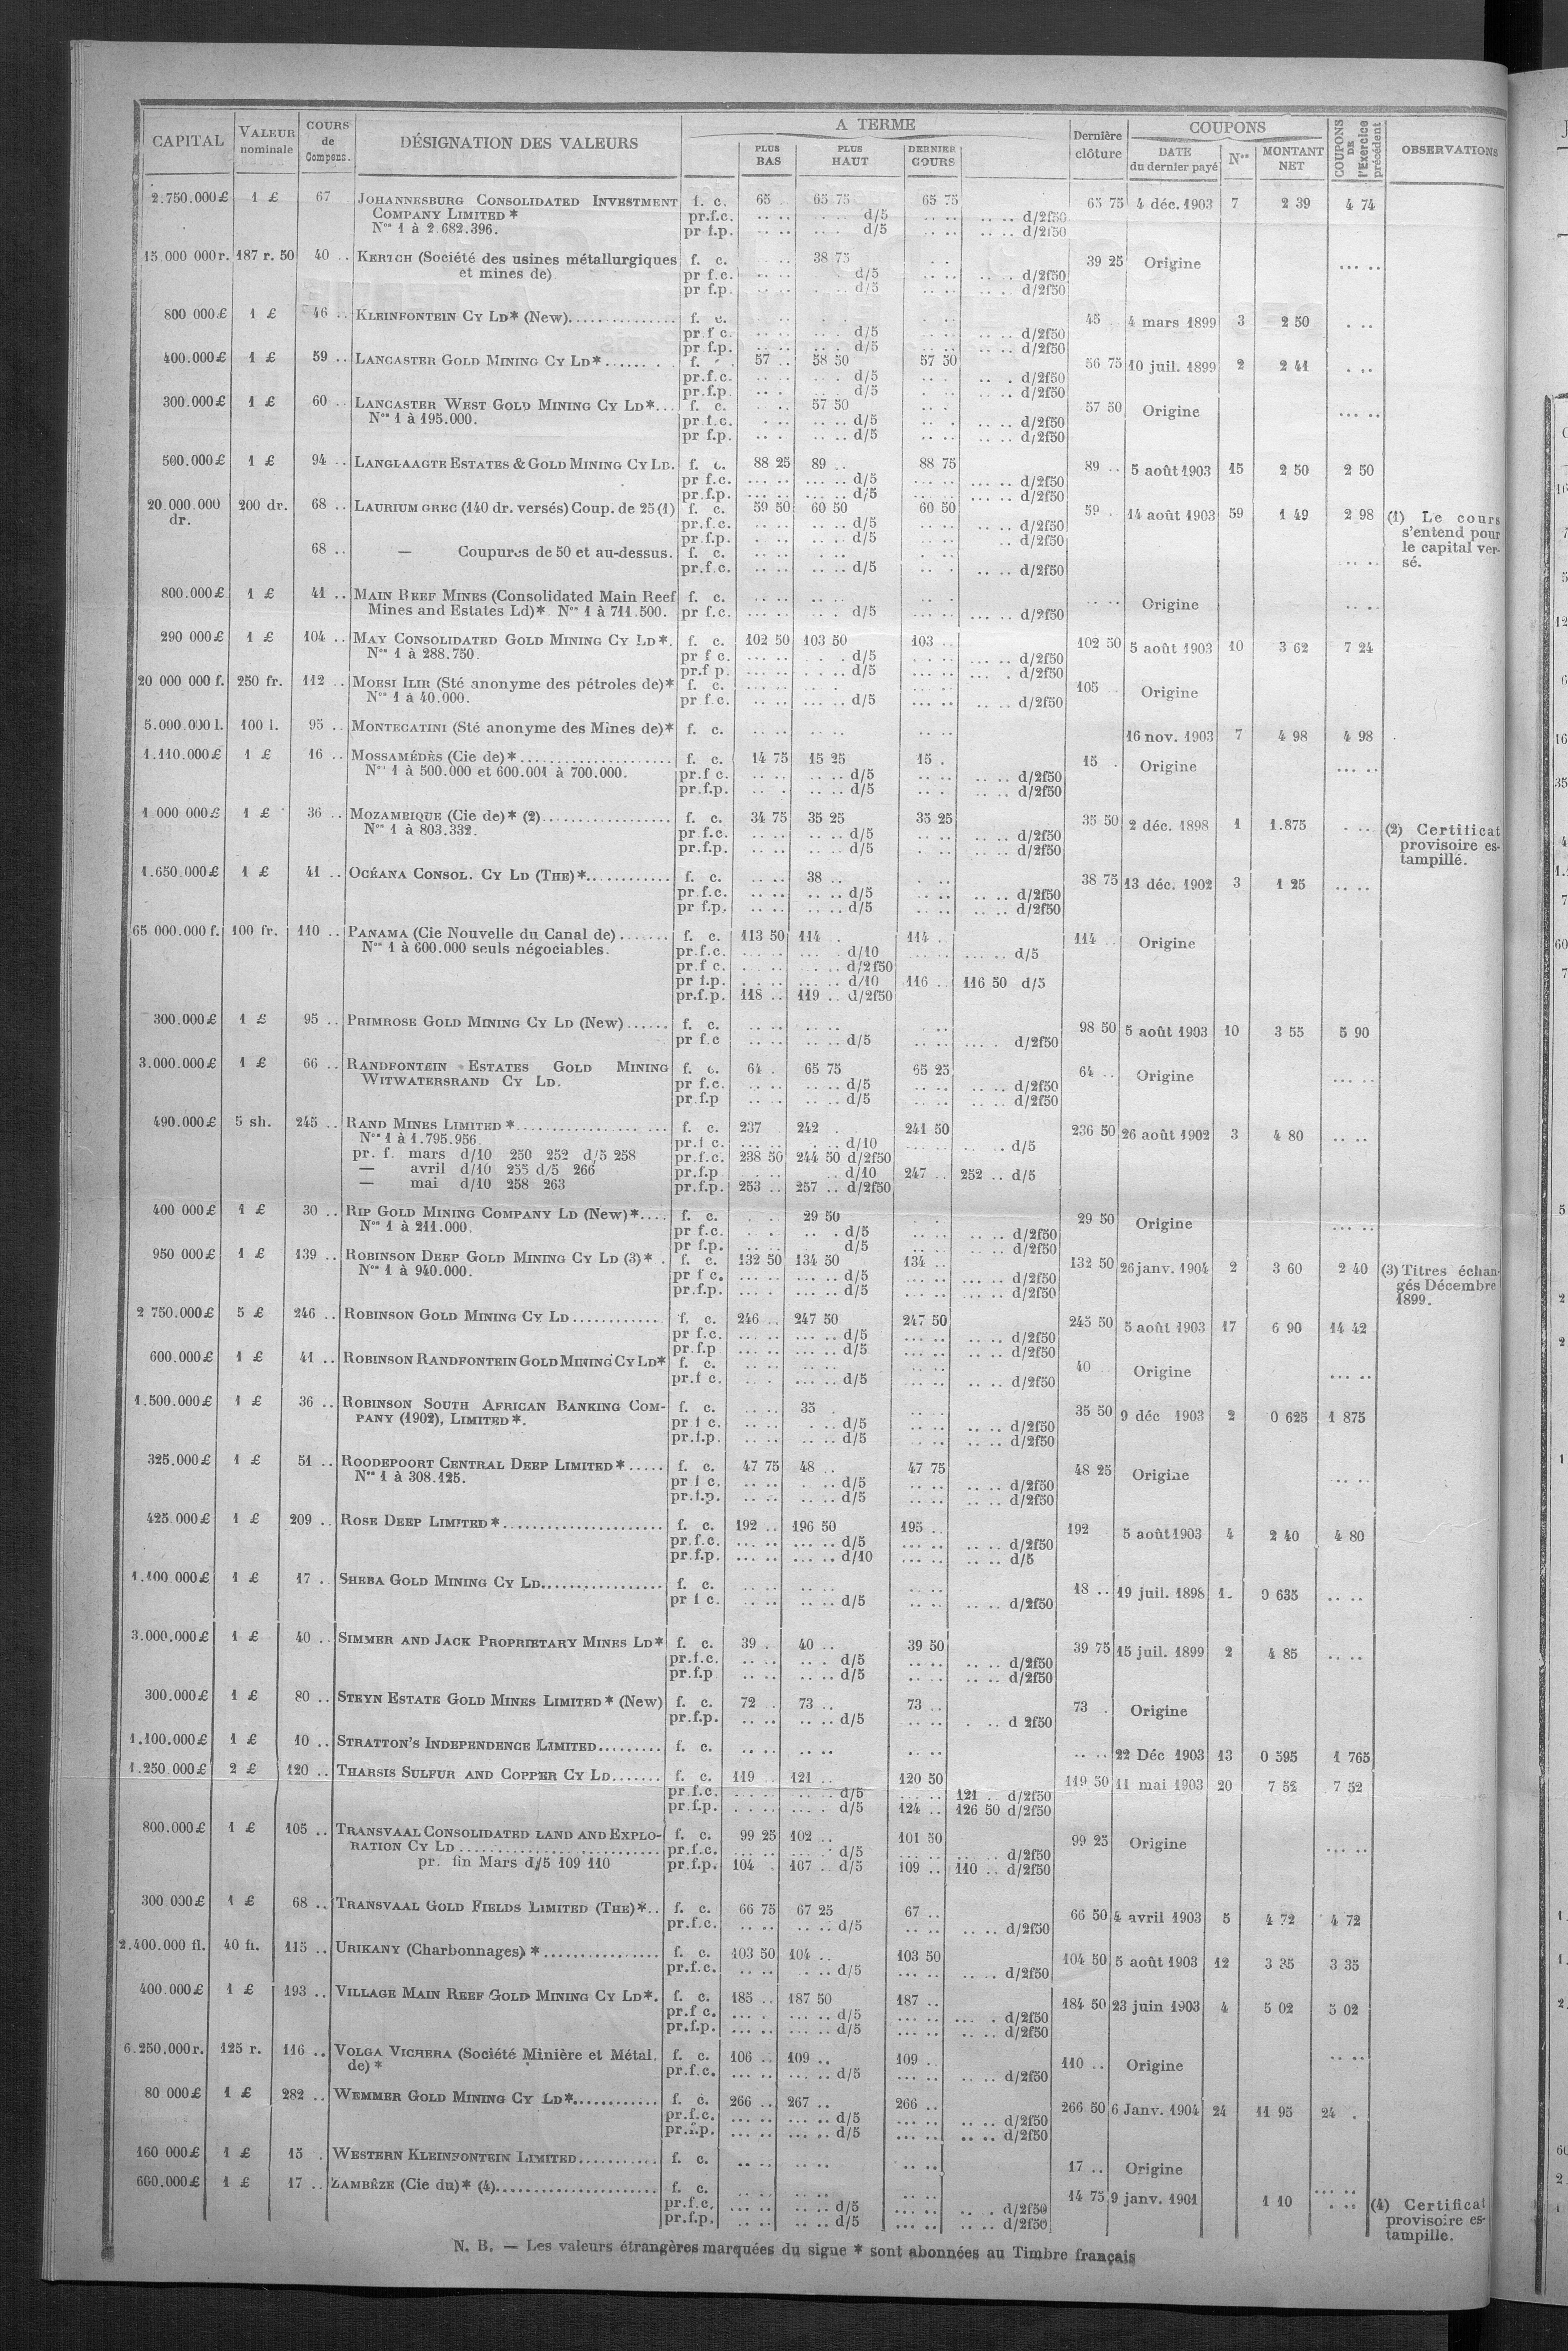 CAPITAL VALEUR nominale COURS de Compens. DÉSIGNATION DES VALEURS A TERME PLUS BAS PLUS HAUT DERNIER COURS Dernière clôture COUPONS DATE du dernier payé Nos MONTANT NET COUPONS DE l'Exercice précédent OBSERVATIONS
2.750.000£ 1 £ 67 JOHANNESBURG CONSOLIDATED INVESTMENT f. c. 65 .. 65 75 65 75 65 75 4 déc. 1903 7 2 39 4 74
COMPANY LIMITED * pr.f.c. .. .. .. .. d/5 .. .. .. .. d/2f50
Nos 1 à 2.682.396. pr f.p. .. .. .. .. d/5 .. .. .. .. d/2f50
15.000 000 r. 187 r. 50 40 .. KERTCH (Société des usines métallurgiques f. c. .. .. 38 75 .. .. 39 25 Origine ... ..
et mines de) pr f.c. .. .. .. .. d/5 .. .. .. .. d/2f50
pr f.p. .. .. .. .. d/5 .. .. .. .. d/2f50
800 000£ 1 £ 46 .. KLEINFONTEIN CY LD* (New)............... f. c. .. .. .. .. .. .. 45 4 mars 1899 3 2 50 . ..
pr f c. .. .. .. .. d/5 .. .. .. .. d/2f50
pr f.p. .. .. .. .. d/5 .. .. .. .. d/2f50
400.000£ 1 £ 59 .. LANCASTER GOLD MINING CY LD*....... f. 57 .. 58 50 57 50 56 75 10 juil. 1899 2 2 41 . ..
pr.f.c. .. .. .. .. d/5 .. .. .. .. d/2f50
pr.f.p. .. .. .. .. d/5 .. .. .. .. d/2f50
300.000£ 1 £ 60 .. LANCASTER WEST GOLD MINING CY LD*... f. c. .. .. 57 50 .. .. 57 50 Origine ... ..
Nos 1 à 195.000. pr f.c. .. .. .. .. d/5 .. .. .. .. d/2f50
pr f.p. .. .. .. .. d/5 .. .. .. .. d/2f50
500.000£ 1 £ 94 .. LANGLAAGTE ESTATES & GOLD MINING CY LD. f. c. 88 25 89 .. 88 75 89 .. 5 août 1903 15 2 50 2 50
pr f.c. ... .. ... .. d/5 ... .. ... .. d/2f50
pr.f.p. ... .. ... .. d/5 ... .. ... .. d/2f50
20.000.000 dr. 200 dr. 68 .. LAURIUM GREC (140 dr. versés) Coup. de 25 (1) f. c. 59 50 60 50 60 50 59 . 14 août 1903 59 1 49 2 98 (1) Le cours s'entend pour le capital versé.
pr.f.c. .. .. .. .. d/5 .. .. .. .. d/2f50
pr.f.p. .. .. .. .. d/5 .. .. .. d/2f50
68 .. — Coupures de 50 et au-dessus. f. c. .. .. .. .. .. .. .. ..
pr.f.c. .. .. .. .. d/5 .. .. .. .. d/2f50
800.000£ 1 £ 41 .. MAIN REEF MINES (Consolidated Main Reef f. c. .. .. .. .. .. .. .. .. Origine .. ..
Mines and Estates Ld)*. Nos 1 à 711.500. pr f.c. ... .. .. .. d/5 ... .. ... .. d/2f50
290 000£ 1 £ 104 .. MAY CONSOLIDATED GOLD MINING CY LD*. f. c. 102 50 103 50 103 .. 102 50 5 août 1903 10 3 62 7 24
Nos 1 à 288.750. pr f c. ... .. .. .. d/5 ... .. ... .. d/2f50
pr.f p. ... .. ... .. d/5 ... .. ... . d/2f50
20 000 000 f. 250 fr. 112 .. MOESI ILIR (Sté anonyme des pétroles de)* f. c. ... .. .. .. .. .. 105 .. Origine
Nos 1 à 40.000. pr f.c. .. .. .. .. d/5 ... .. .. .. d/2f50
5.000.000 l. 100 l. 95 .. MONTECATINI (Sté anonyme des Mines de)* f. c. .. .. .. .. .. .. 16 nov. 1903 7 4 98 4 98
1.110.000£ 1 £ 16 .. MOSSAMÉDÈS (Cie de)*..................... f. c. 14 75 15 25 15 . 15 . Origine ... ..
Nos 1 à 500.000 et 600.001 à 700.000. pr.f c. .. .. .. .. d/5 .. .. .. .. d/2f50
pr.f.p. .. . .. .. d/5 .. . .. .. d/2f50
1 000 000£ 1 £ 36 .. MOZAMBIQUE (Cie de)* (2)................. f. c. 34 75 35 25 35 25 35 50 2 déc. 1898 1 1.875 . .. (2) Certificat provisoire estampillé.
Nos 1 à 803.332. pr f.c. .. .. .. .. d/5 .. .. .. .. d/2f50
pr.f.p. .. .. .. .. d/5 . .. .. .. d/2f50
1.650.000£ 1 £ 41 .. OCÉANA CONSOL. CY LD (THE)*........... f. c. .. .. 38 .. .. .. 38 75 13 déc. 1902 3 1 25 .. ..
pr f.c. .. .. .. .. d/5 .. .. .. .. d/2f50
pr f.p. .. .. .. .. d/5 .. .. .. .. d/2f50
65 000.000 f. 100 fr. 110 .. PANAMA (Cie Nouvelle du Canal de)....... f. c. 113 50 114 . 114 . 114 .. Origine
Nos 1 à 600.000 seuls négociables. pr.f.c. ... .. ... . d/10 ... .. ... .. d/5
pr.f c. . .. . .. d/2f50
pr f.p. . .. ... .. d/10 116 .. 116 50 d/5
pr.f.p. 118 .. 119 .. d/2f50
300.000£ 1 £ 95 .. PRIMROSE GOLD MINING CY LD (New)...... f. c. .. .. .. .. .. 98 50 5 août 1903 10 3 55 5 90
pr f.c .. .. .. .. d/5 .. .. ... . d/2f50
3.000.000£ 1 £ 66 .. RANDFONTEIN ESTATES GOLD MINING f. c. 64 . 65 75 65 25 64 .. Origine ... ..
WITWATERSRAND CY LD. pr f.c. .. .. .. .. d/5 .. .. .. .. d/2f50
pr.f.p .. .. .. .. d/5 .. .. .. .. d/2f50
490.000£ 5 sh. 245 .. RAND MINES LIMITED *................... f. c. 237 242 . 241 50 236 50 26 août 1902 3 4 80 .. ..
Nos 1 à 1.795.956. pr.f c. ... .. . .. d/10 ... .. .. . d/5
pr. f. mars d/10 250 252 d/5 258 pr.f.c. 238 50 244 50 d/2f50
— avril d/10 255 d/5 266 pr.f.p . .. .. d/10 247 .. 252 .. d/5
— mai d/10 258 263 pr.f.p. 253 .. 257 .. d/2f50
400 000£ 1 £ 30 .. RIP GOLD MINING COMPANY LD (New)*.... f. c. . . 29 50 . . 29 50 Origine ... ..
Nos 1 à 211.000. pr f.c. .. . .. . d/5 .. .. .. .. d/2f50
pr f.p. .. .. d/5 .. .. .. .. d/2f50
950 000£ 1 £ 139 .. ROBINSON DEEP GOLD MINING CY LD (3)* . f. c. 132 50 134 50 134 .. 132 50 26 janv. 1904 2 3 60 2 40 (3) Titres échangés Décembre 1899.
Nos 1 à 940.000. pr f c. ... .. ... .. d/5 ... .. ... .. d/2f50
pr.f.p. ... . ... .. d/5 ... .. .. .. d/2f50
2 750.000£ 5 £ 246 .. ROBINSON GOLD MINING CY LD............ f. c. 246 .. 247 50 247 50 245 50 5 août 1903 17 6 90 14 42
pr f.c. ... .. ... .. d/5 ... .. .. .. d/2f50
pr.f.p ... .. ... .. d/5 ... .. .. .. d/2f50
600.000£ 1 £ 41 .. ROBINSON RANDFONTEIN GOLD MINING CY LD* f. c. .. .. .. .. .. .. 40 .. Origine ... ..
pr.f c. .. . ... .. d/5 .. .. .. .. d/2f50
1.500.000£ 1 £ 36 .. ROBINSON SOUTH AFRICAN BANKING COM- f. c. .. .. 35 . .. .. 35 50 9 déc 1903 2 0 625 1 875
PANY (1902), LIMITED*. pr f c. .. .. . .. d/5 .. .. .. .. d/2f50
pr.f.p. .. .. .. .. d/5 .. .. .. .. d/2f50
325.000£ 1 £ 51 .. ROODEPOORT CENTRAL DEEP LIMITED*..... f. c. 47 75 48 .. 47 75 48 25 Origine .. ..
Nos 1 à 308.125. pr f c. .. .. . .. d/5 .. .. .. .. d/2f50
pr.f.p. .. .. .. .. d/5 .. .. .. .. d/2f50
425.000£ 1 £ 209 .. ROSE DEEP LIMITED*...................... f. c. 192 .. 196 50 195 .. 192 5 août 1903 4 2 40 4 80
pr f.c. ... .. ... .. d/5 ... .. .. .. d/2f50
pr.f.p. ... .. ... .. d/10 ... .. .. .. d/5
1.100 000£ 1 £ 17 .. SHEBA GOLD MINING CY LD................. f. c. .. .. .. .. .. .. 18 .. 19 juil. 1898 1 0 635 .. ..
pr f c. .. .. .. .. d/5 .. .. .. .. d/2f50
3.000.000£ 1 £ 40 .. SIMMER AND JACK PROPRIETARY MINES LD* f. c. 39 . 40 .. 39 50 39 75 15 juil. 1899 2 4 85 .. ..
pr.f.c. .. .. .. . d/5 .. .. .. .. d/2f50
pr.f.p .. .. .. .. d/5 .. .. .. .. d/2f50
300.000£ 1 £ 80 .. STEYN ESTATE GOLD MINES LIMITED* (New) f. c. 72 . 73 .. 73 .. 73 . Origine
pr.f.p. .. .. .. .. d/5 .. .. . .. d 2f50
1.100.000£ 1 £ 10 .. STRATTON'S INDEPENDENCE LIMITED......... f. c. .. .. .. .. .. .. .. .. 22 Déc 1903 13 0 595 1 765
1.250 000£ 2 £ 120 .. THARSIS SULFUR AND COPPER CY LD....... f. c. 119 .. 121 .. 120 50 119 50 11 mai 1903 20 7 52 7 52
pr.f.c. ... .. ... .. d/5 ... .. 121 . d/2f50
pr.f.p. . .. ... . d/5 124 .. 126 50 d/2f50
800.000£ 1 £ 105 .. TRANSVAAL CONSOLIDATED LAND AND EXPLO- f. c. 99 25 102 .. 101 50 99 25 Origine ... ..
RATION CY LD........................... pr.f.c. ... .. ... .. d/5 ... .. ... .. d/2f50
pr. fin Mars d/5 109 110 pr.f.p. 104 . 107 .. d/5 109 .. 110 .. d/2f50
300.000£ 1 £ 68 .. TRANSVAAL GOLD FIELDS LIMITED (THE)*.. f. c. 66 75 67 25 67 .. 66 50 4 avril 1903 5 4 72 4 72
pr.f.c. .. .. .. .. d/5 .. .. .. .. d/2f50
2.400.000 fl. 40 fl. 115 .. URIKANY (Charbonnages) *................ f. c. 103 50 104 .. 103 50 104 50 5 août 1903 12 3 35 3 35
pr.f.c. .. .. . .. d/5 ... .. .. .. d/2f50
400.000£ 1 £ 193 .. VILLAGE MAIN REEF GOLD MINING CY LD*. f. c. 185 .. 187 50 187 .. 184 50 23 juin 1903 4 5 02 5 02
pr.f c. ... . ... .. d/5 ... .. ... . d/2f50
pr.f.p. ... .. ... .. d/5 ... .. .. .. d/2f50
6.250.000 r. 125 r. 116 .. VOLGA VICHERA (Société Minière et Métal. f. c. 106 .. 109 .. 109 .. 110 .. Origine .. ..
de)* pr.f.c. ... .. ... .. d/5 ... .. .. .. d/2f50
80 000£ 1 £ 282 .. WEMMER GOLD MINING CY LD*............ f. c. 266 .. 267 .. 266 .. 266 50 6 Janv. 1904 24 11 95 24 .
pr.f.c. ... .. ... .. d/5 ... .. .. .. d/2f50
pr.f.p. ... .. ... .. d/5 ... .. .. .. d/2f50
160 000£ 1 £ 15 . WESTERN KLEINFONTEIN LIMITED........... f. c. .. .. .. .. .. .. 17 .. Origine
600.000£ 1 £ 17 .. ZAMBÈZE (Cie du)* (4)...................... f. c. .. .. .. .. .. .. 14 75 9 janv. 1901 1 10 . .. (4) Certificat provisoire estampille.
pr.f.c. ... .. .. .. d/5 ... .. .. . d/2f50
pr.f.p. .. .. .. .. d/5 ... .. .. .. d/2f50
N. B. — Les valeurs étrangères marquées du signe * sont abonnées au Timbre français